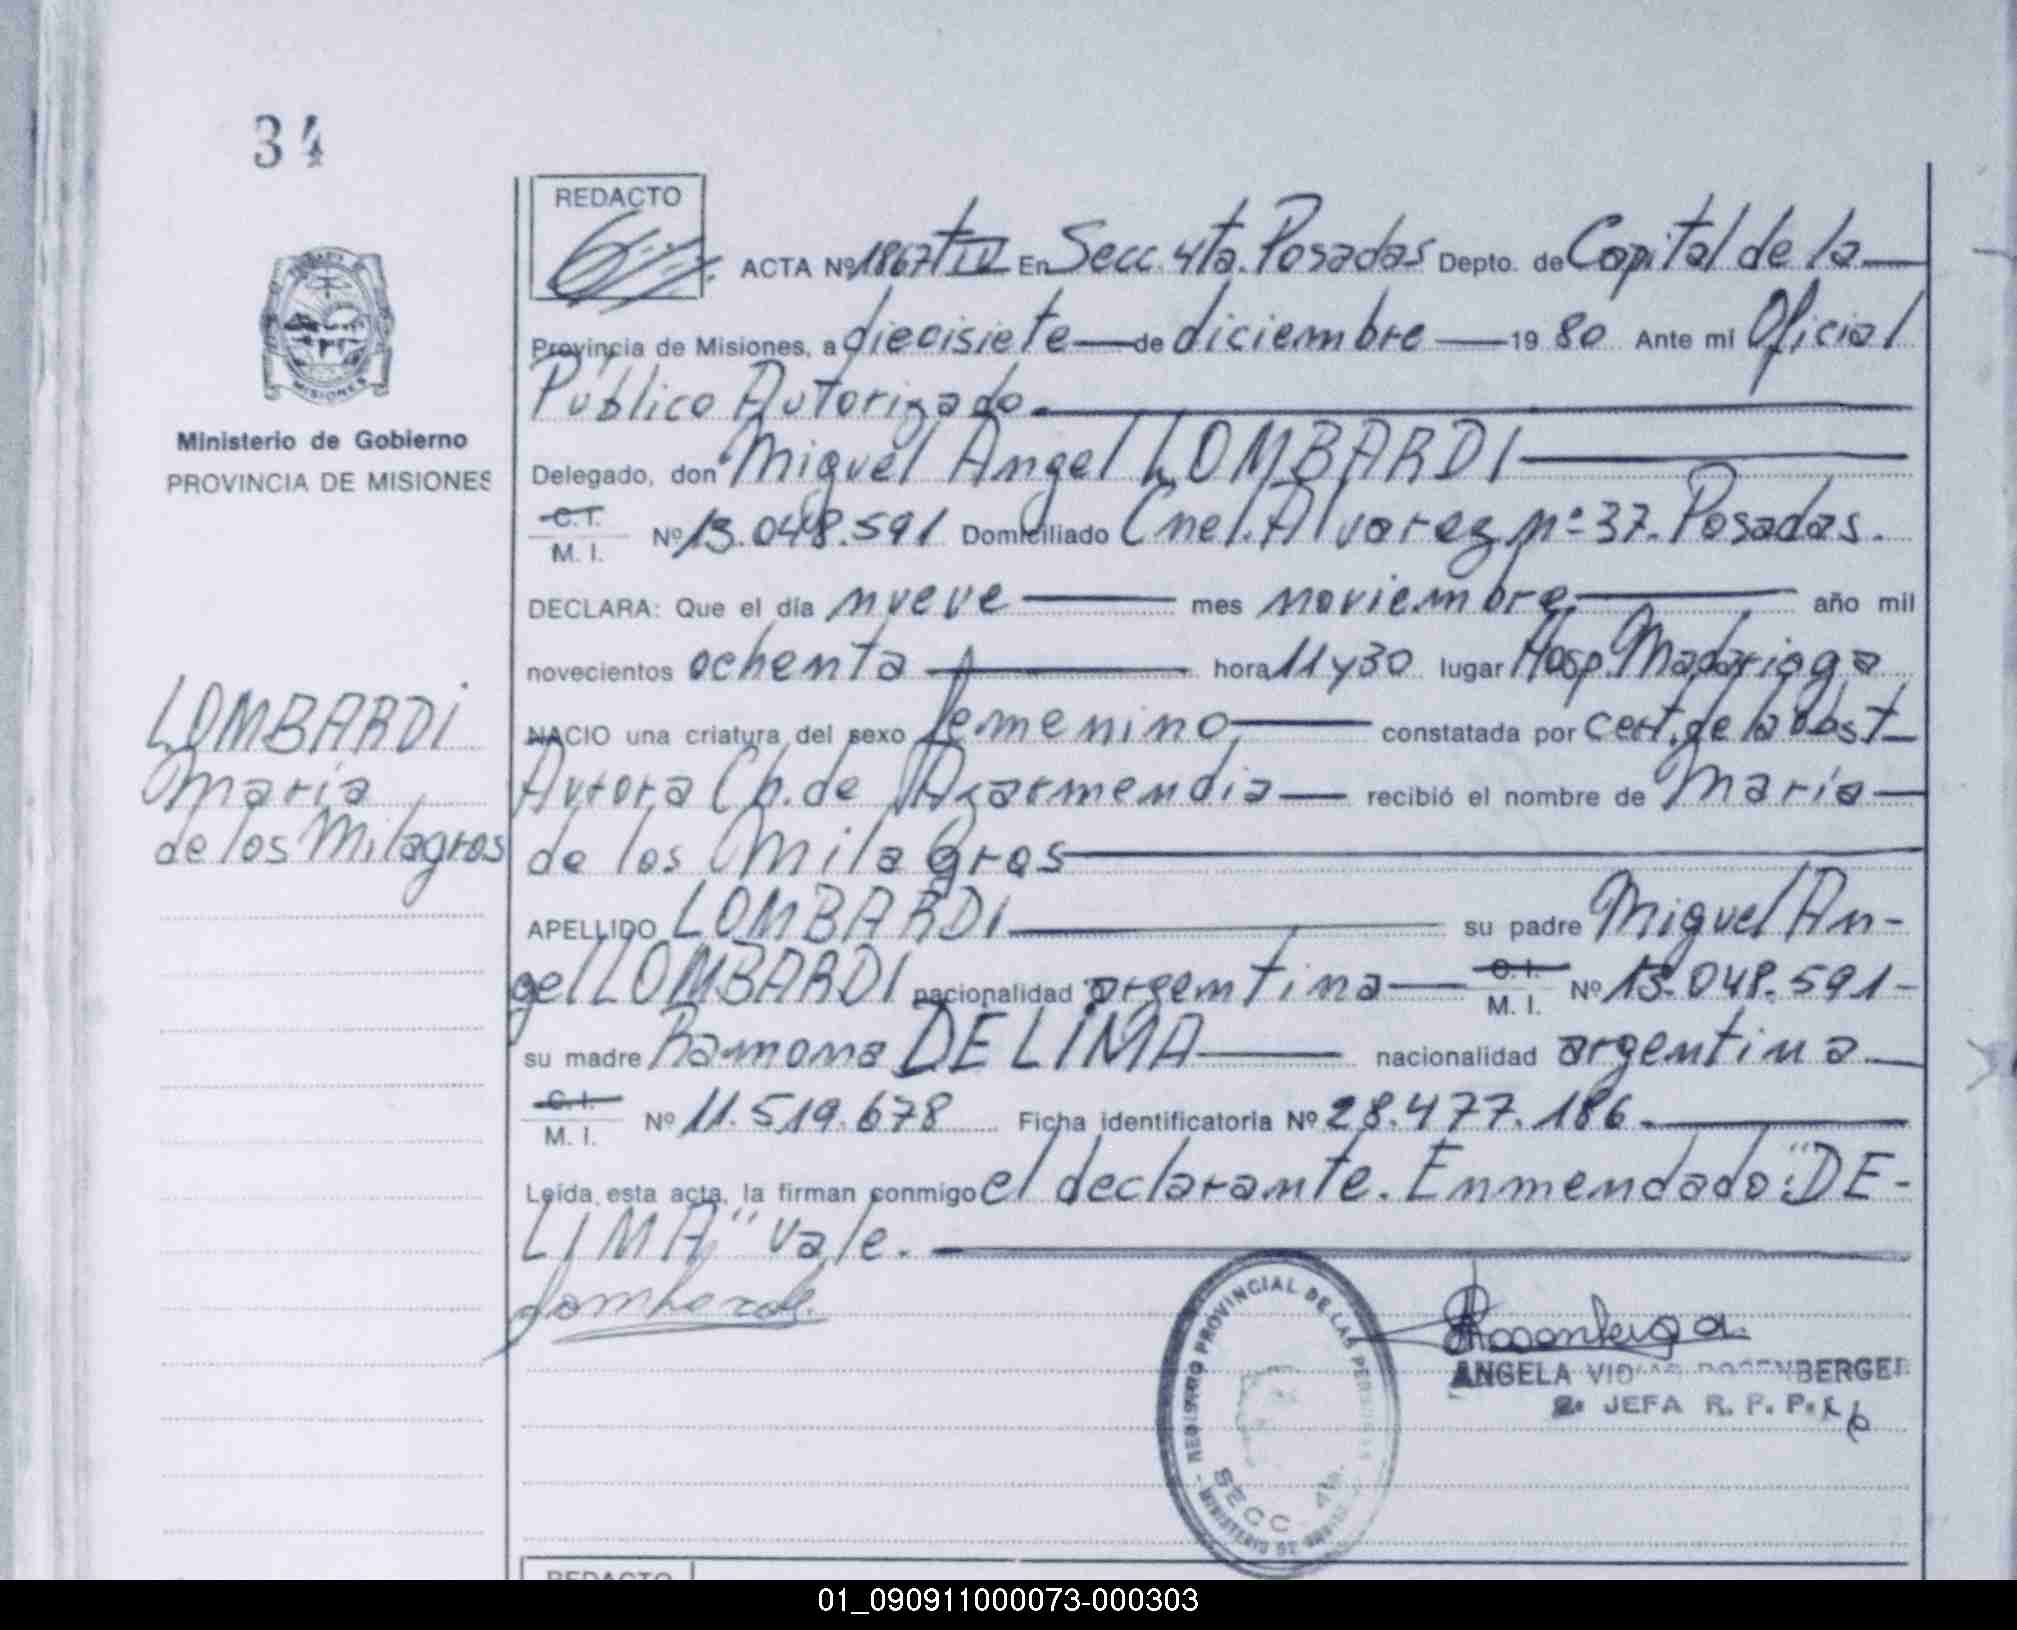 34
REDACTO
ACTA Nº 1867 tIV En Secc. 4ta. Posadas Depto. de Capital de la
Provincia de Misiones, a diecisiete de diciembre 19 80 Ante mi Oficial
Público Autorizado.
Ministerio de Gobierno
PROVINCIA DE MISIONES
Delegado, don Miguel Angel LOMBARDI
C.I.
M. I. Nº 13.048.591 Domiciliado Cnel. Alvarez nº 37. Posadas.
DECLARA: Que el día nueve mes noviembre año mil
novecientos ochenta hora 11 y 30 lugar Hosp. Madariaga
NACIO una criatura del sexo femenino constatada por cert. de la obst
Aurora Ch. de Azarmendia recibió el nombre de María
de los Milagros
LOMBARDI
María
de los Milagros
APELLIDO LOMBARDI su padre Miguel An-
gel LOMBARDI nacionalidad argentina C.I. M. I. Nº 13.048.591-
su madre Ramona DE LIMA nacionalidad argentina
C.I.
M. I. Nº 11.519.678 Ficha identificatoria Nº 28.477.186.
Leída esta acta, la firman conmigo el declarante. Enmendado: "DE-
LIMA" vale.
REGISTRO PROVINCIAL DE LAS PERSONAS
SECC. 4ta.
ANGELA ROSENBERGER
2. JEFA R. P. P.
REDACTO
01_090911000073-000303